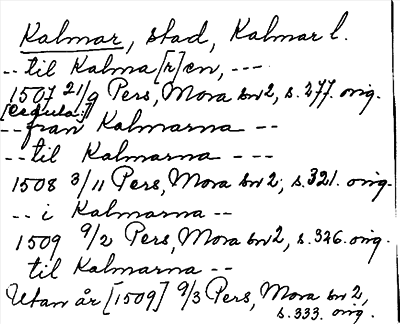 Kalmar, stad, Kalmar l.
-- til Kalma[r]en, ---
1507 21/9 Pers, Mora bn 2, s. 277. orig.
[Cedula:]
-- från Kalmarna --
-- til Kalmarna ---
1508 3/11 Pers, Mora bn 2, s. 321. orig.
-- i Kalmarna --
1509 9/2 Pers, Mora bn 2, s. 326. orig.
til Kalmarna --
Utan år [1509] 9/3 Pers, Mora bn 2,
s. 333. orig.